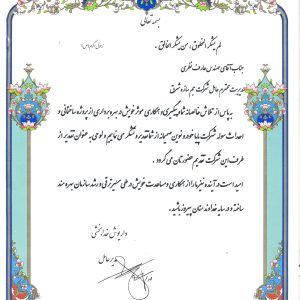 بسمه تعالی
لم یشکر المخلوق، من یشکر الخالق.
جناب آقای مهندس عارف نظری
مدیریت محترم عامل شرکت جم سازه شرق
به پاس از تلاش خالصانه شما و پیگیری و همکاری موثر خویش در بهره برداری از پروژه ساختمانی و
احداث سوله شرکت پایا خودرو نوین صمیمانه از شما تقدیر و تشکر می نماییم و لوحی به عنوان تقدیر از
طرف این شرکت تقدیم حضورتان می گردد.
امید است در آینده نیز ما را از همکاری و مساعدت خویش در طی مسیر ترقی و رشد سازمان بهره مند
ساخته و در سایه خداوند منان پیروز باشید.
داریوش خدابخشی
مدیر عامل